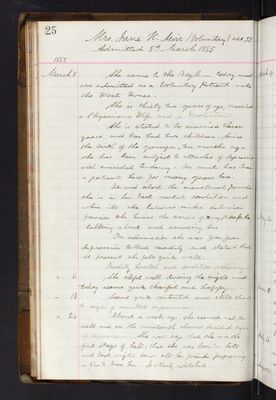 25
Mrs. Jane H. Muir (Voluntary) aet 32
Admitted 5th March 1855
1855
March 5 She came to the Asylum today and
was admitted as a Voluntary Patient into
the West House.
She is thirty two years of age, married
a Physician's Wife and a
She is stated to be married three
years and has had two children. Since
the birth of the younger, ten months ago
she has been subject to attacks of depression
with suicidal tendency. An has been
a patient here for many years here.
At and about the menstrual periods
she is in her best mental condition and
when the
she hears the voices of people
talking about and accusing her.
On admission she was free from
depression talked readily and stated that
at present she felt quite well.
Bodily health and condition
" 6 She slept well during the night and
today seems quite cheerful and happy.
" 13 Seems quite contented and still shows
no sign of mental depression.
" 24 About a week ago she seemed not so
well and on the nineteenth showed decided signs
of depression. She now says that she is in the
first stage of hell; that she was born in hell
and last night saw all her friends preparing
a fire to burn her. Is strictly watched.